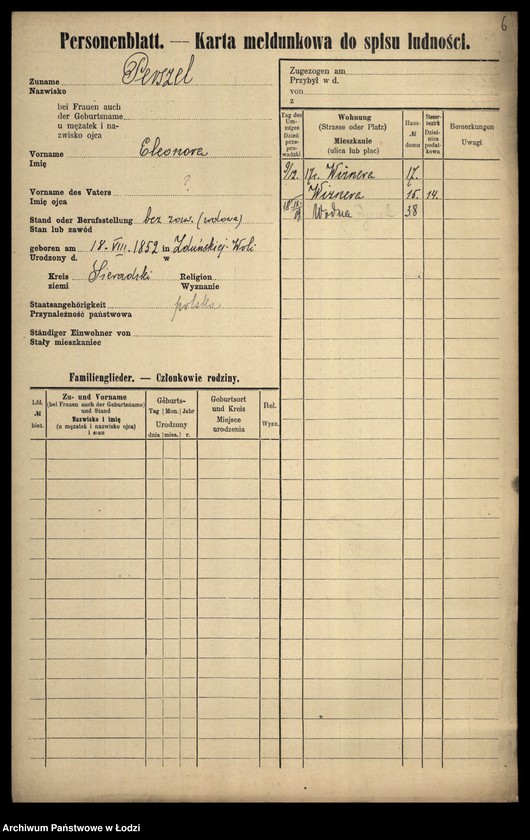 6
Personenblatt. — Karta meldunkowa do spisu ludności.
Zuname
Nazwisko
Perszel
bei Frauen auch
der Geburtsname
u mężatek i na-
zwisko ojca
Vorname Eleonora
Imię
Vorname des Vaters ?
Imię ojca
Stand oder Berufsstellung bez zaw. (wdowa)
Stan lub zawód
geboren am 18-VIII. 1852 in Zduńskiej-Woli
Urodzony d. w
Kreis Sieradzki Religion
ziemi Wyznanie
Staatsangehörigkeit polska
Przynależność państwowa
Ständiger Einwohner von
Stały mieszkaniec
Familienglieder. — Członkowie rodziny.
Lfd.
№
bież.
Zu- und Vorname
(bei Frauen auch der Geburtsname)
und Stand
Nazwisko i imię
(u mężatek i nazwisko ojca)
i stan
Geburts-
Tag Mon. Jahr
Urodzony
dnia mies. r.
Geburtsort
und Kreis
Miejsce
urodzenia
Rel.
Wyzn.
Zugezogen am
Przybył w d.
von
z
Tag des
Um-
zuges
Dzień
prze-
prowadzki
Wohnung
(Strasse oder Platz)
Mieszkanie
(ulica lub plac)
Haus-
№
domu
Steuer-
bezirk
Dziel-
nica
podat-
kowa
Bemerkungen
Uwagi
9/12. 17r. Wiznera 17.
Wiznera 16. 14.
Wodna 38
Archiwum Państwowe w Łodzi